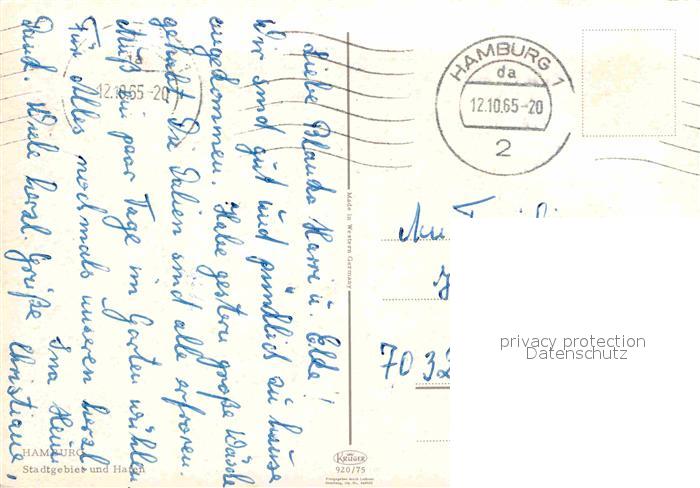 Liebe Blanka Harri u. Elke!
Wir sind gut und pünktlich zu hause
angekommen. Habe gestern große Wäsche
gehabt. Die Dalien sind alle erfroren.
Muß ein paar Tage im Garten wühlen
Für Alles nochmals unseren herzl.
Dank. Viele herzl. Grüße Christiane,
HAMBURG
Stadtgebiet und Hafen
Made in Western Germany
KRÜGER
920/75
HAMBURG 1
da
12.10.65-20
2
da
12.10.65-20
An
7032
privacy protection
Datenschutz